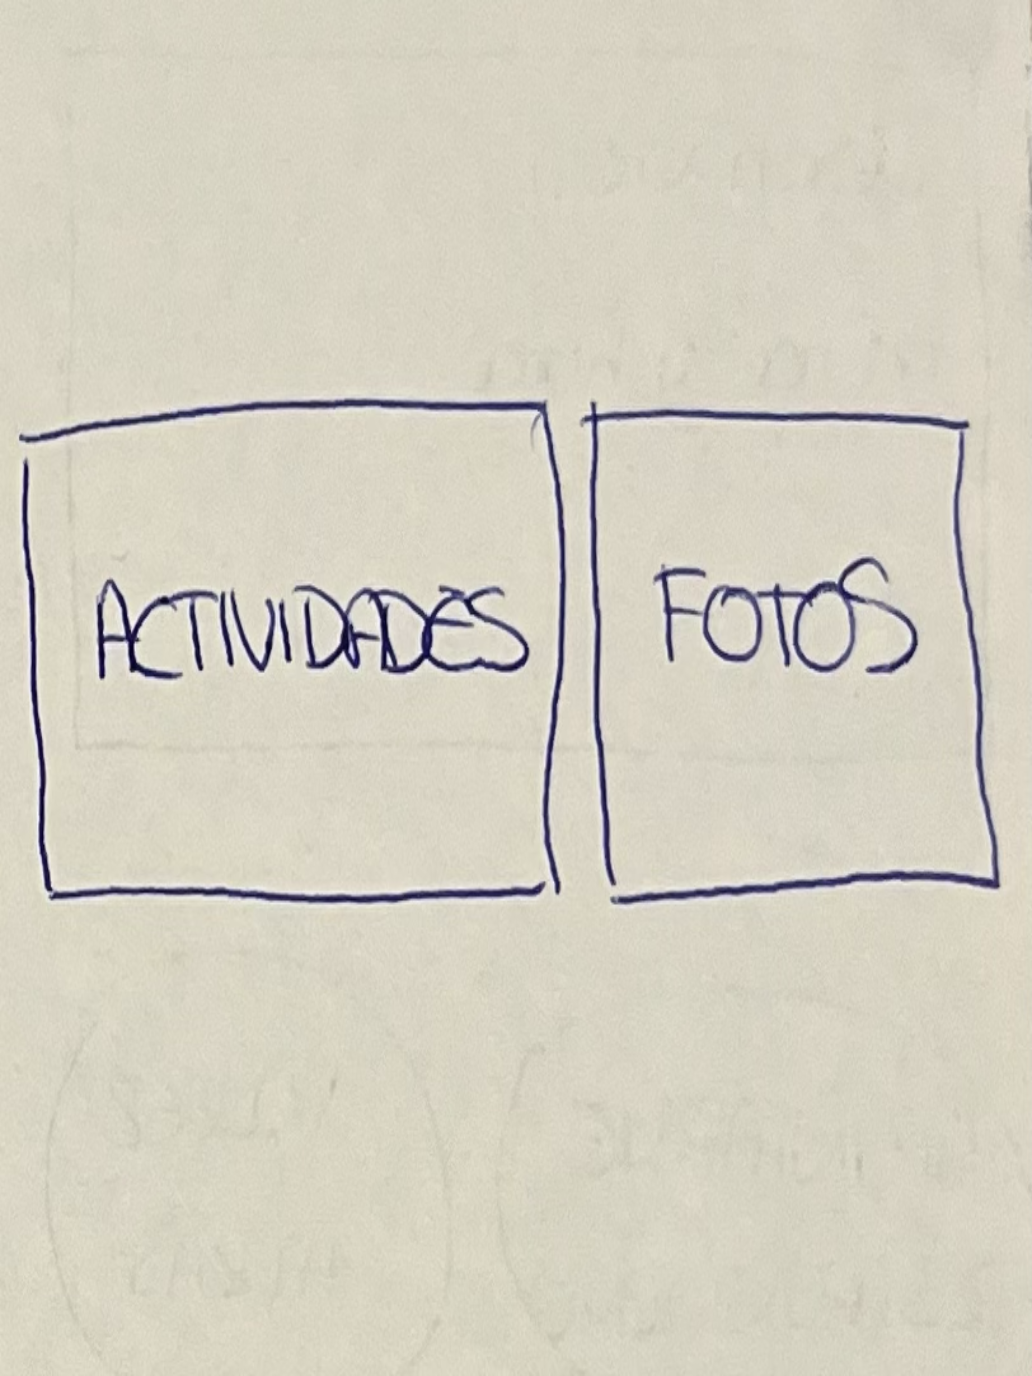 ACTIVIDADES FOTOS